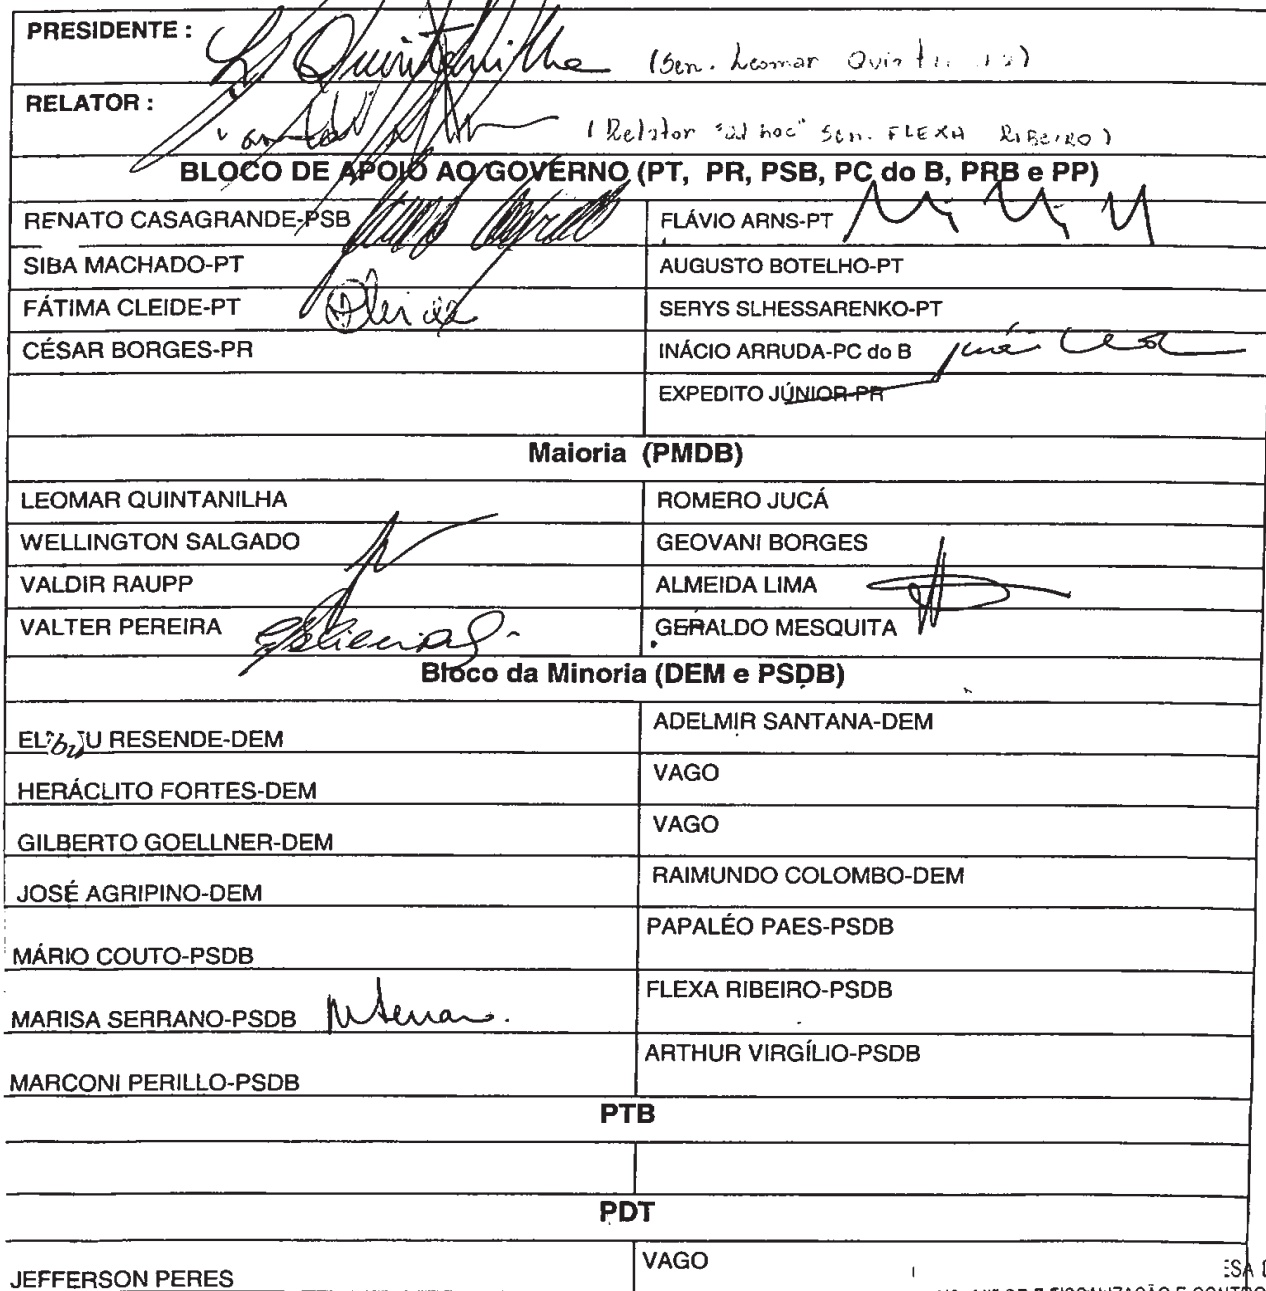 PRESIDENTE : L. Quintanilha (Sen. Leomar Quintanilha)
RELATOR :
(Relator "ad hoc" Sen. FLEXA RIBEIRO)
BLOCO DE APOIO AO GOVERNO (PT, PR, PSB, PC do B, PRB e PP)
RENATO CASAGRANDE-PSB
FLÁVIO ARNS-PT
SIBA MACHADO-PT
AUGUSTO BOTELHO-PT
FÁTIMA CLEIDE-PT
SERYS SLHESSARENKO-PT
CÉSAR BORGES-PR
INÁCIO ARRUDA-PC do B
EXPEDITO JÚNIOR-PR
Maioria (PMDB)
LEOMAR QUINTANILHA
ROMERO JUCÁ
WELLINGTON SALGADO
GEOVANI BORGES
VALDIR RAUPP
ALMEIDA LIMA
VALTER PEREIRA
GERALDO MESQUITA
Bloco da Minoria (DEM e PSDB)
ADELMIR SANTANA-DEM
RESENDE-DEM
VAGO
HERÁCLITO FORTES-DEM
VAGO
GILBERTO GOELLNER-DEM
RAIMUNDO COLOMBO-DEM
JOSÉ AGRIPINO-DEM
PAPALÉO PAES-PSDB
MÁRIO COUTO-PSDB
FLEXA RIBEIRO-PSDB
MARISA SERRANO-PSDB
ARTHUR VIRGÍLIO-PSDB
MARCONI PERILLO-PSDB
PTB
PDT
VAGO
JEFFERSON PERES